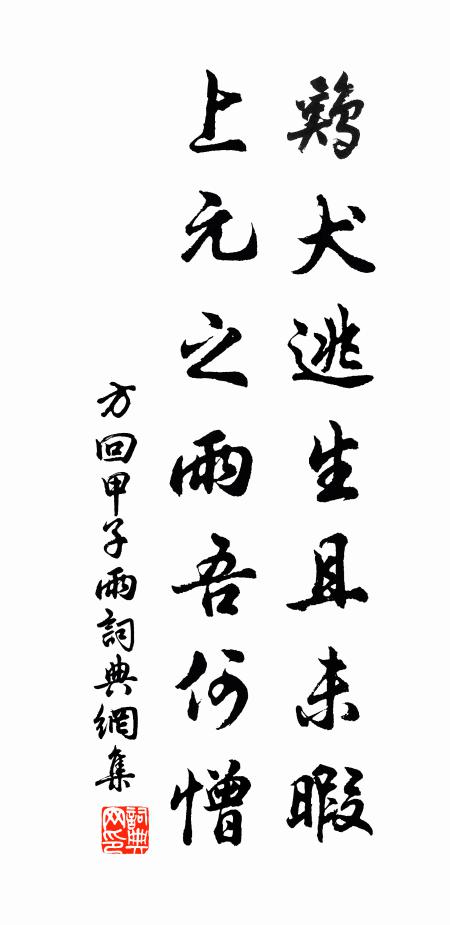 鷄犬逃生且未暇
上元之雨吾何憎
方回甲子雨詞典網集
詞典網印